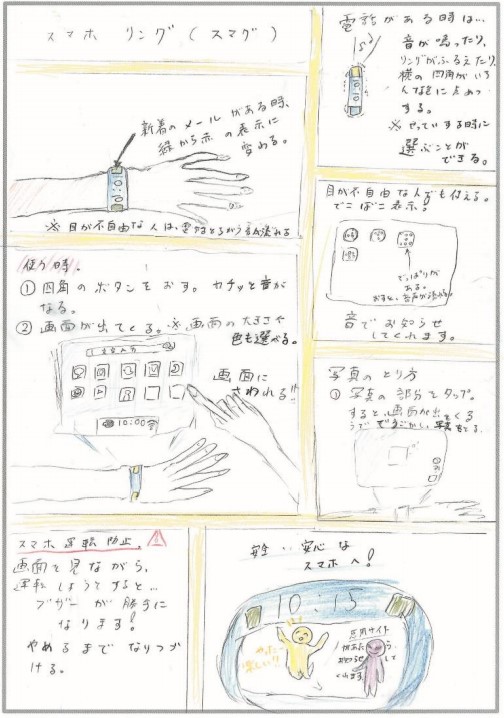 スマホ リング(スマグ)
新着のメールがある時、
緑から赤の表示に
変わる。
※目が不自由な人は、
電話がある時は…
音が鳴ったり、
リングがふるえたり、
横の四角がいろ
んな色に点めつ
する。
※せっていする時に
選ぶことが
できる。
目が不自由な人でも使える。
でこぼこ表示!
でっぱりが
ある。
音でお知らせ
してくれます。
使う時。
①四角のボタンをおす。カチッと音が
なる。
②画面が出てくる。※画面の大きさや
色も選べる。
文字入力
10:00
画面に
さわれる!!
写真のとり方
①写真の部分をタップ。
すると画面が出てくる
うででうごかし、写真をとる。
スマホ運転防止
画面を見ながら、
運転しようとすると…
ブザーが勝手に
なります!
やめるまでなりつづ
ける。
安全…安心な
スマホへ!
10:15
やったー
楽しい!!
悪用サイト